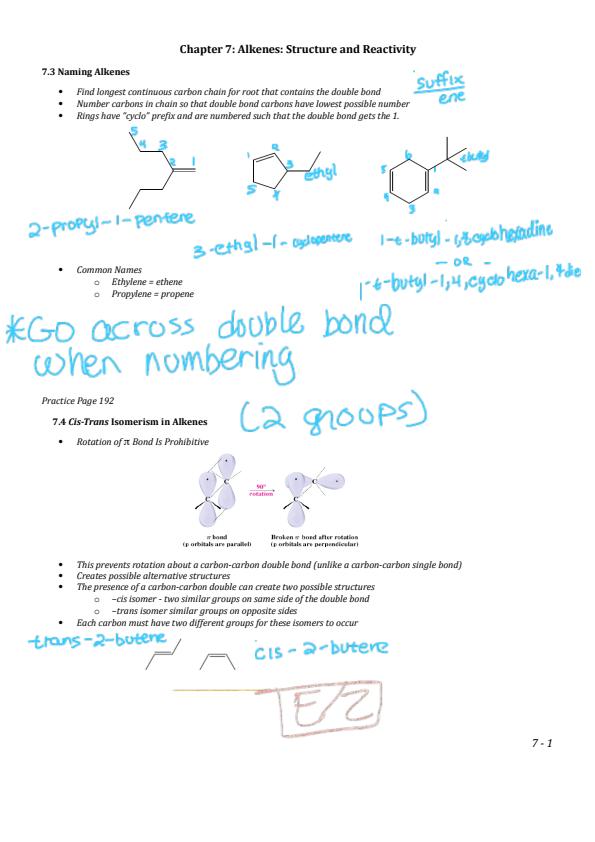 Chapter 7: Alkenes: Structure and Reactivity
7.3 Naming Alkenes
• Find longest continuous carbon chain for root that contains the double bond
• Number carbons in chain so that double bond carbons have lowest possible number
• Rings have "cyclo" prefix and are numbered such that the double bond gets the 1.
suffix
ene
5
4 3
2 1
1 2
3 ethyl
5 4
6
5 1 t-butyl
4 2
3
2-propyl-1-pentene
3-ethyl-1-cyclopentene
1-t-butyl-1,4 cyclohexadine
- OR -
1-t-butyl-1,4, cyclo hexa-1,4 die
• Common Names
o Ethylene = ethene
o Propylene = propene
*Go across double bond
when numbering
Practice Page 192
7.4 Cis-Trans Isomerism in Alkenes
(2 groups)
• Rotation of π Bond Is Prohibitive
C C C C
90°
rotation
π bond
(p orbitals are parallel)
Broken π bond after rotation
(p orbitals are perpendicular)
• This prevents rotation about a carbon-carbon double bond (unlike a carbon-carbon single bond)
• Creates possible alternative structures
• The presence of a carbon-carbon double can create two possible structures
o –cis isomer - two similar groups on same side of the double bond
o –trans isomer similar groups on opposite sides
• Each carbon must have two different groups for these isomers to occur
trans-2-butene
cis-2-butene
E/Z
7 - 1